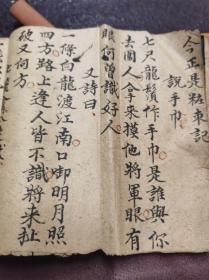 今正是粧束記
說手巾
七尺龍鬚作手巾是誰與你
去園人拿來摸他將軍眼有
眼何曾識好人
又詩曰
一條白龍渡江南口御明月照
四方路上逢人皆不識將来扯
破又何方